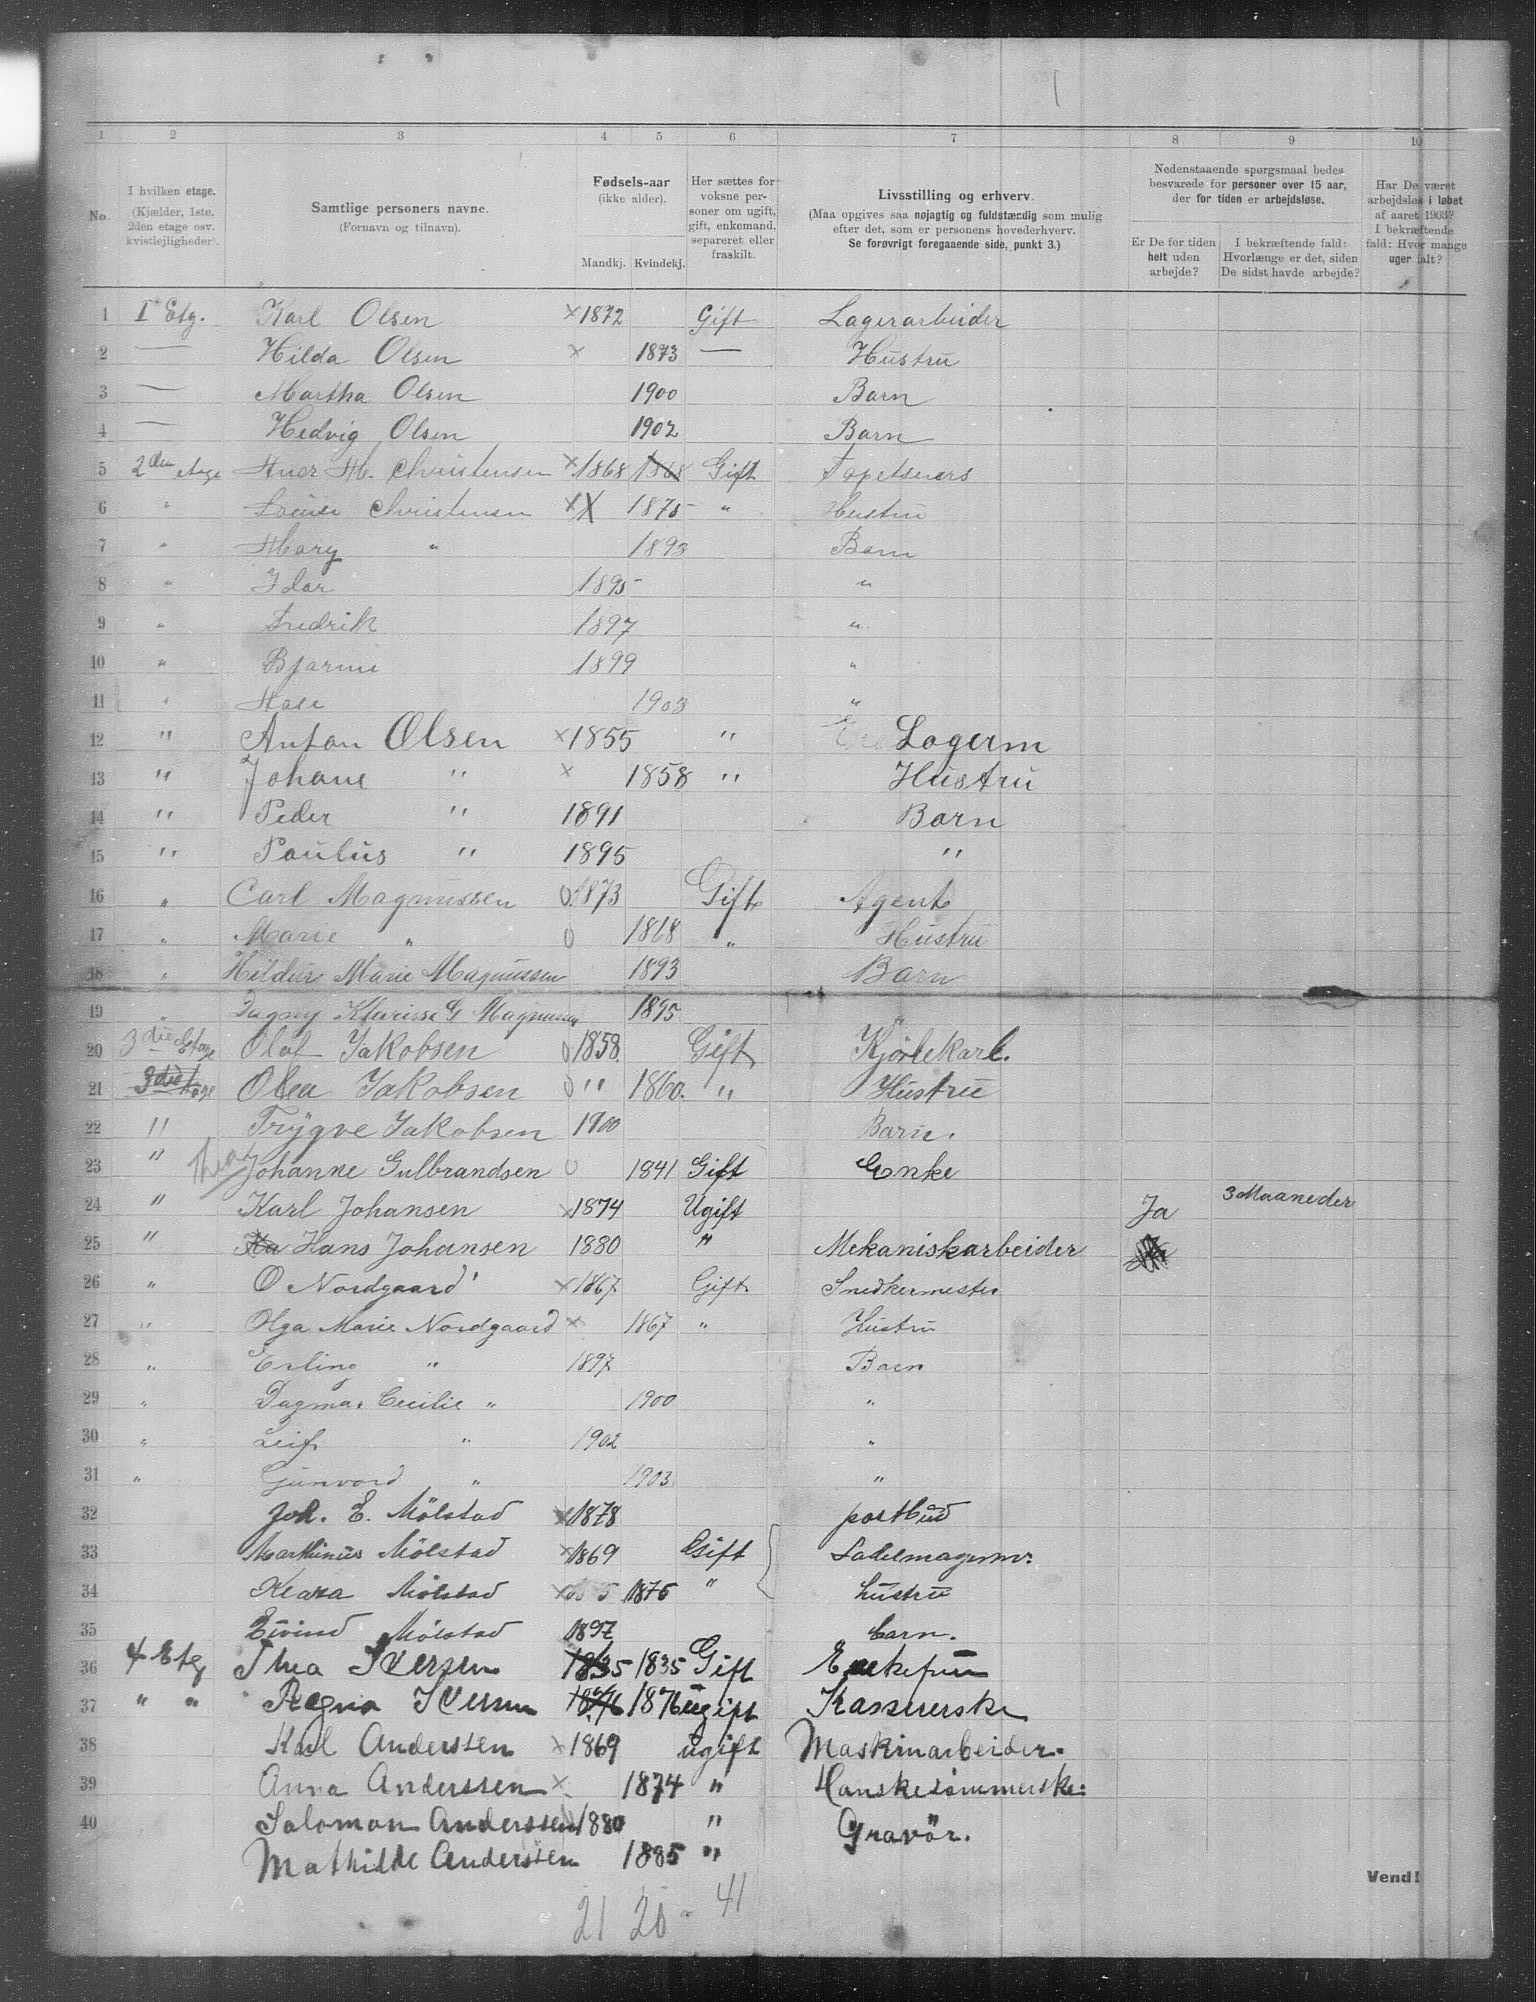 1 2 3 4 5 6 7 8 9 10
No.
I hvilken etage.
(Kjælder, 1ste,
2den etage osv.
kvistleiligheder).
Samtlige personers navne.
(Fornavn og tilnavn).
Fødsels-aar
(ikke alder).
Mandkj. Kvindekj.
Her sættes for
voksne per-
soner om ugift,
gift, enkemand,
separeret eller
fraskilt.
Livsstilling og erhverv.
(Maa opgives saa nøjagtig og fuldstændig som mulig
efter det, som er personens hovederhverv.
Se forøvrigt foregaaende side, punkt 3.)
Nedenstaaende spørgsmaal bedes
besvarede for personer over 15 aar,
der for tiden er arbejdsløse.
Er De for tiden
helt uden
arbejde?
I bekræftende fald:
Hvorlænge er det, siden
De sidst havde arbejde?
Har De været
arbejdsløs i løbet
af aaret 1903?
I bekræftende
fald: Hvor mange
uger ialt?
1 I Etg. Karl Olsen × 1872 Gift Lagerarbeider
2 — Hilda Olsen × 1873 — Hustru
3 — Martha Olsen 1900 Barn
4 — Hedvig Olsen 1902 Barn
5 2den etage H. Christensen × 1868 1868 Gift
6 " Christensen × X 1875 " Hustru
7 " Mary " 1893 Barn
8 " Idar 1895 "
9 " Fredrik 1897 "
10 " Bjarne 1899 "
11 " 1903 "
12 " Anton Olsen × 1855 " Lagerm
13 " Johane " × 1858 " Hustru
14 " Peder " 1891 Barn
15 " Paulus " 1895 "
16 " Carl Magnussen 0 1873 Gift Agent
17 " Marie " 0 1868 " Hustru
18 " Hildur Marie Magnussen 1893 Barn
19 " Dagny Klarisse G Magnussen 1895 "
20 3die Etage Olaf Jakobsen 0 1858. Gift Kjørekarl.
21 3die Etage Olea Jakobsen 0 " 1860. " Hustru
22 " Trygve Jakobsen 1900 Barn.
23 " Thea Johanne Gulbrandsen 0 1841 Gift Enke
24 " Karl Johansen × 1874 Ugift Ja 3 Maaneder
25 " Ka Hans Johansen 1880 " Mekaniskarbeider
26 " O Nordgaard × 1867 Gift Snedkermester
27 " Olga Marie Nordgaard × 1867 " Hustru
28 " Erling " 1897 Barn
29 " Dagmar Cecilie " 1900 "
30 " Leif " 1902 "
31 " Gunvord " 1903 "
32 Joh. E. Mölstad × 1878 postbud
33 Marthinus Mölstad × 1869 Gift Sadelmagersv.
34 Klara Mölstad × 1875 " hustru
35 Eivind Mölstad 1897 barn.
36 4 Etg Thea Iversen 1835 1835 Gift Enkefru
37 " " Ragna Iversen 1876 1876 ugift Kassererske
38 Karl Anderssen × 1869 ugift Maskinarbeider.
39 Anna Anderssen × 1874 " Hanskesømmerske.
40 Salomon Anderssen 1880 " Gravör.
Mathilde Anderssen 1885 "
Vend!
21 20 - 41